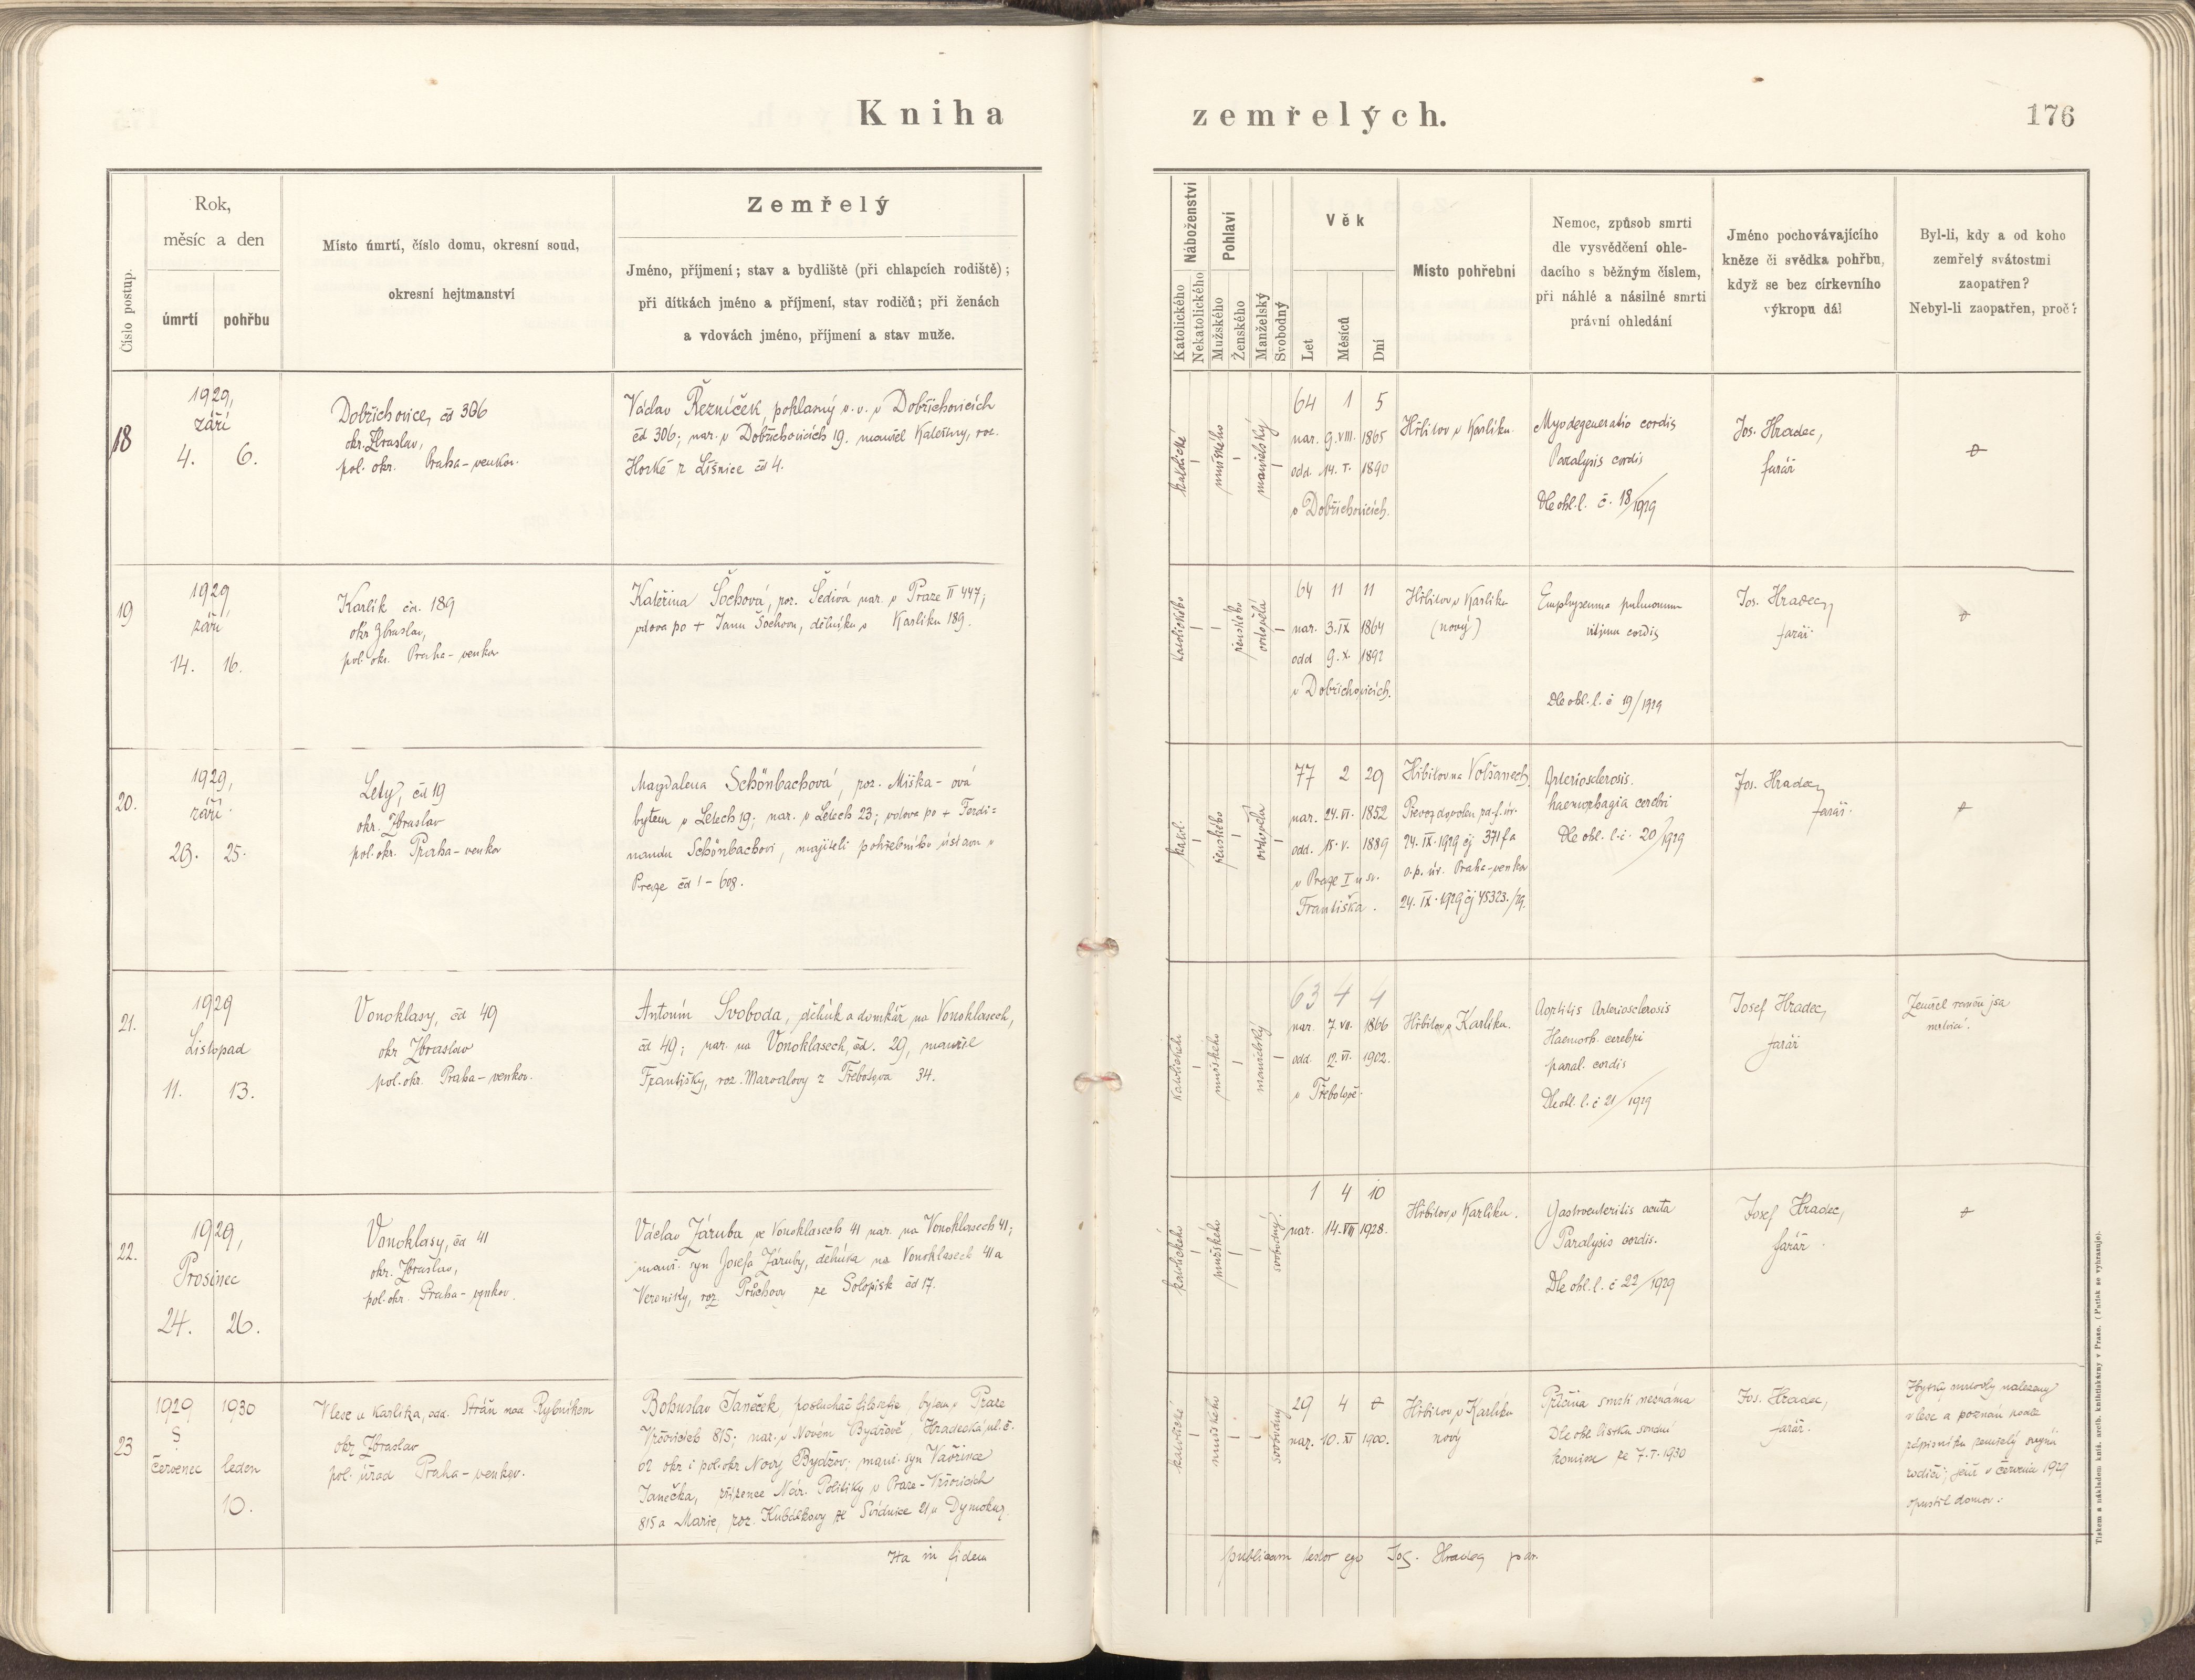 Kniha zemřelých.
176
Číslo postup.
Rok,
měsíc a den
úmrtí
pohřbu
Místo úmrtí, číslo domu, okresní soud,
okresní hejtmanství
Zemřelý
Jméno, příjmení; stav a bydliště (při chlapcích rodiště);
při dítkách jméno a příjmení, stav rodičů; při ženách
a vdovách jméno, příjmení a stav muže.
Náboženství
Katolického
Nekatolického
Pohlaví
Mužského
Ženského
Manželský
Svobodný
Věk
Let
Měsíců
Dní
Místo pohřební
Nemoc, způsob smrti
dle vysvědčení ohle-
dacího s běžným číslem,
při náhlé a násilné smrti
právní ohledání
Jméno pochovávajícího
kněze či svědka pohřbu,
když se bez církevního
výkropu dál
Byl-li, kdy a od koho
zemřelý svátostmi
zaopatřen?
Nebyl-li zaopatřen, proč?
18
1929,
září
4. 6.
Dobřichovice, čd 306
okr. Zbraslav,
pol. okr. Praha-venkov.
Václav Řezníček, pokladný v Dobřichovicích
čd 306; nar. v Dobřichovicích 19. manžel Kateřiny, roz.
Horké z Líšnice čd 4.
katolické
mužského
manželský
64 1 5
nar. 9. VIII. 1865
odd. 14. I. 1890
v Dobřichovicích.
Hřbitov v Karlíku.
Myodegeneratio cordis
Paralysis cordis
Dle ohl. l. č. 18/1929
Jos. Hradec,
farář
19
1929
září
14. 16.
Karlík čd. 189
okr Zbraslav,
pol. okr. Praha-venkov
Kateřina Šochová, roz. Šedivá nar. v Praze II 447;
vdova po + Janu Šochovi, dělníku v Karlíku 189.
katolického
ženského
ovdovělá
64 11 11
nar. 3. IX 1864
odd 9. X. 1892
v Dobřichovicích.
Hřbitov v Karlíku
(nový)
Emphysema pulmonum
vitium cordis
Dle ohl. l. č 19/1929
Jos. Hradec,
farář.
20.
1929,
září.
23. 25.
Lety, čd 19
okr. Zbraslav
pol. okr. Praha-venkov
Magdalena Schönbachová, roz. Miška-ová
bytem v Letech 19; nar. v Letech 23; vdova po + Ferdi=
nandu Schönbachovi, majiteli pohřebního ústavu v
Praze čd I-608.
katol.
ženského
ovdovělá
77 2 29
nar. 24. VI. 1852
odd. 15. V. 1889
v Praze I u sv.
Františka.
Hřbitov na Volšanech.
Převoz dovolen
24. IX. 1929 čj 371
o. p. úř. Praha-venkov
24. IX. 1929 čj 45323./29.
Arteriosclerosis.
haemorhagia cerebri
Dle ohl. l. č. 20/1929
Jos. Hradec,
farář.
21.
1929
Listopad
11. 13.
Vonoklasy, čd 49
okr Zbraslav
pol. okr. Praha-venkov.
Antonín Svoboda, dělník a domkář na Vonoklasech,
čd 49; nar. na Vonoklasech, čd. 29, manžel
Františky, roz. Marvalovy z Třebotova 34.
katolického
mužského
manželský
63 4 4
nar. 7. VII. 1866
odd. 12. VI. 1902.
v Třebotově.
Hřbitov v Karlíku.
Aortitis Arteriosclerosis
Haemorh. cerebri
paral. cordis
Dle ohl. l. č 21/1929
Josef Hradec,
farář
Zemřel raněn jsa
mrtvicí.
22.
1929,
Prosinec
24. 26.
Vonoklasy, čd 41
okr. Zbraslav,
pol. okr. Praha-venkov.
Václav Záruba ve Vonoklasech 41 nar. na Vonoklasech 41;
manž. syn Josefa Záruby, dělníka na Vonoklasech 41 a
Veroniky, roz. Průchovy ze Solopisk čd 17.
katolického
mužského
svobodný.
1 4 10
nar. 14. VIII 1928.
Hřbitov v Karlíku.
Gastroenteritis acuta
Paralysis cordis.
Dle ohl. l. č 22/1929
Josef Hradec,
farář.
23
1929 1930
červenec leden
10.
V lese u Karlíka, odd. Stráň nad Rybníkem
okr Zbraslav
pol. úřad Praha-venkov.
Bohuslav Janeček, posluchač filosofie bytem v Praze
Vršovicích 815; nar. v Novém Bydžově, Hradecká ul. č.
62 okr i pol. okr Nový Bydžov; manž. syn Vavřince
Janečka, zřízence Nár. Politiky v Praze-Vršovicích
815 a Marie, roz. Kubálkovy ze Svídnice 21 u Dymokur.
katolické
mužského
svobodný
29 4
nar. 10. XI 1900.
Hřbitov v Karlíku
nový
Příčina smrti neznáma
Dle ohl. lístku soudní
komise ze 7. I. 1930
Jos. Hradec,
farář.
Zbytky mrtvoly nalezeny
v lese a poznán podle
zápisníku zemřelý svými
rodiči; jenž v červenci 1929
opustil domov.
Ita in fidem publicam testor ego Jos. Hradec, par.
Tiskem a nákladem kníž. arcib. knihtiskárny v Praze. (Patisk se vyhrazuje).